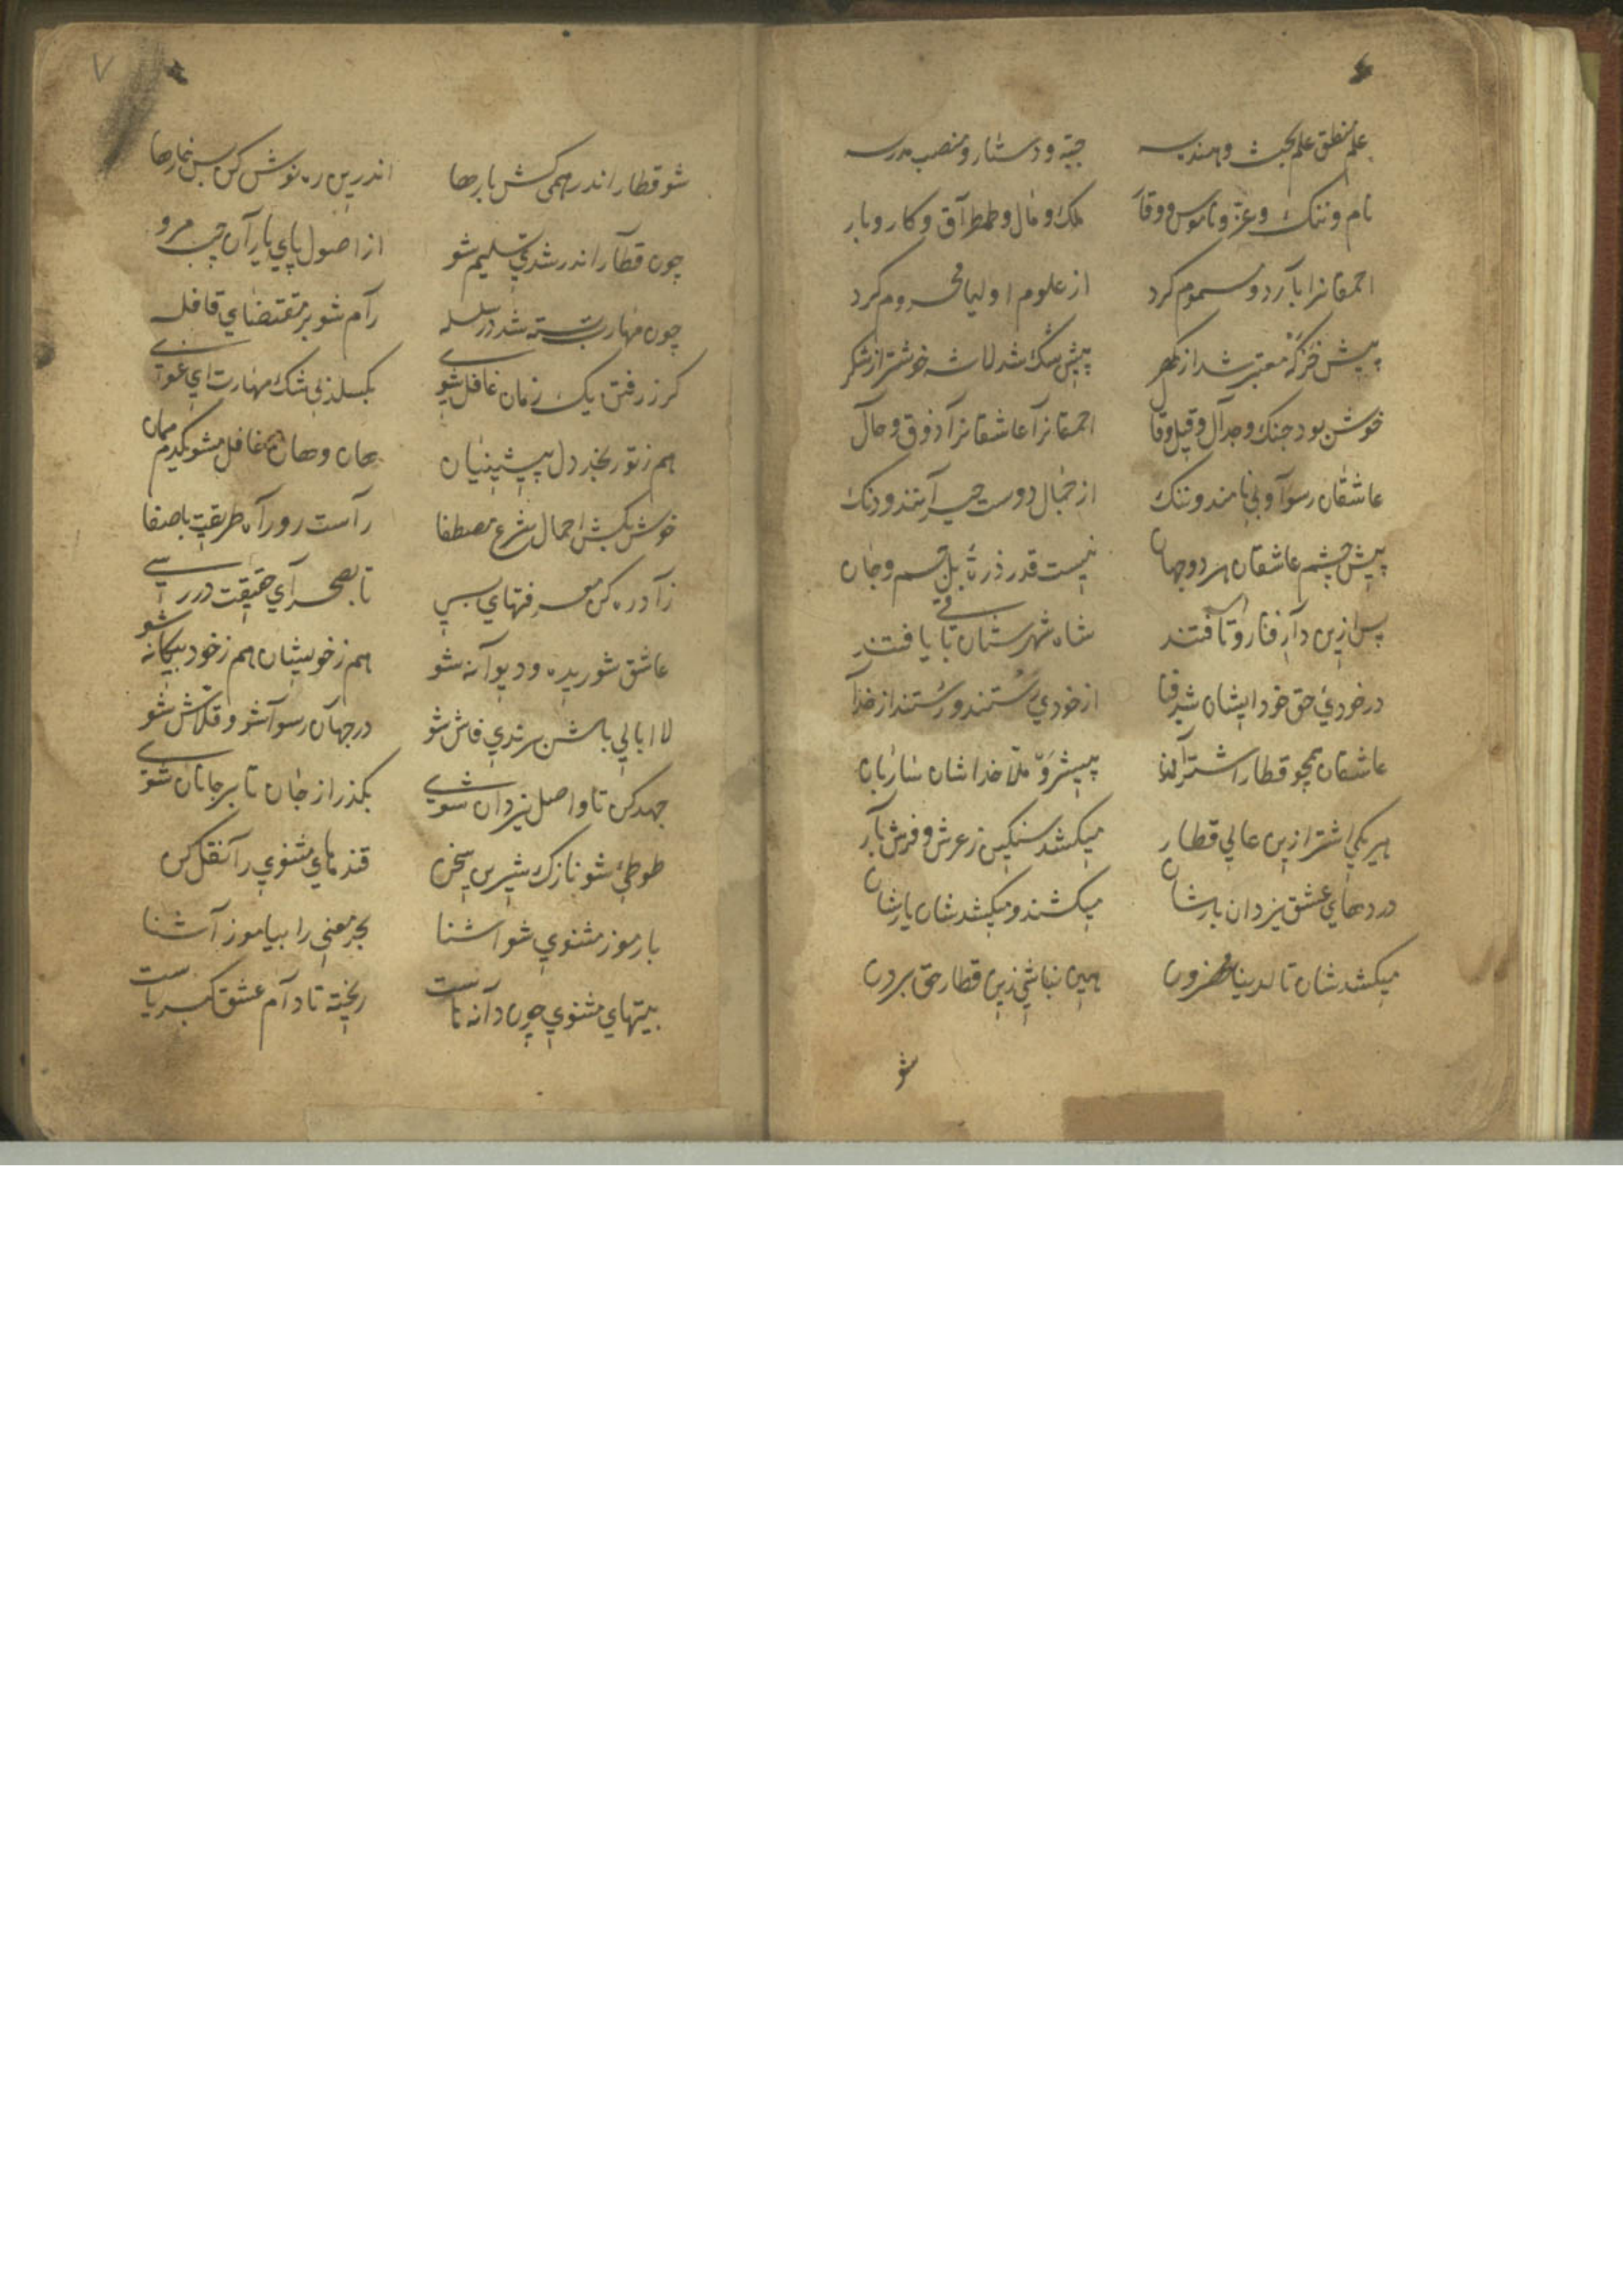 علم منطق علم بحث و هندسه جبّه و دستار و منصب مدرسه
نام و ننك و عزّ و ناموس و وقار ملك و مال و طمطراق و كار و بار
احمقانرا بارد و مسموم كرد از علوم اوليا محروم كرد
پيش خر كه معتبر شد از كهر پيش سك شد لاشه خوشتر از شكر
خوش بود جنك و جدال و قيل و قال احمقانرا عاشقانرا ذوق و حال
عاشقان رسوا و بي نامند و ننك از خيال دوست حيرانند و دنك
پيش چشم عاشقان هر دو جهان نيست قدر ذرّه بل جسم و جان
پس ازين دار فنا رو تافتند شاه شهرستان باقي يافتند
در خودي حق خود ايشان شد فنا از خودي رستند و رستند از خدا
عاشقان همچو قطار اشترالند پيشرو ملا خداشان ساربان
هر يكي اشتر ازين عالي قطار ميكشد سنكين ز عرش و فرش بار
دردهاي عشق يزدان بارشان ميكشند و ميكشد شان يارشان
ميكشد شان تا لدينا محضرون هين نباشي زين قطار حق برون
شو
۷
شو قطار اندر همي كش بارها اندرين ره نوش كن بس خارها
چون قطار اندر شدي تسليم شو از اصول پاي ياران چپ مرو
چون مهارت بسته شد در سلسله رام شو بر مقتضاي قافله
كر ز رفتن يك زمان غافل شوي بكسلد بي شك مهارت اي غوي
هم ز تو رنجد دل پيشينيان هان و هان غافل مشو يكدم ممان
خوش بكش احمال شرع مصطفا راست رو راه طريقت با صفا
زاد ره كن معرفتهاي بسي تا بصحراي حقيقت در رسي
عاشق شوريده و ديوانه شو هم ز خويشان هم ز خود بيكانه شو
لا ابالي باش رندي فاش شو در جهان رسوا شو و قلّاش شو
جهد كن تا واصل يزدان شوي بكذر از جان تا بر جانان شوي
طوطي شو نازك شيرين سخن قندهاي مثنوي را نقل كن
با رموز مثنوي شو اشنا بحر معني را بياموز آشنا
بيتهاي مثنوي چون دانه است ريخته تا دام عشق كبرياست